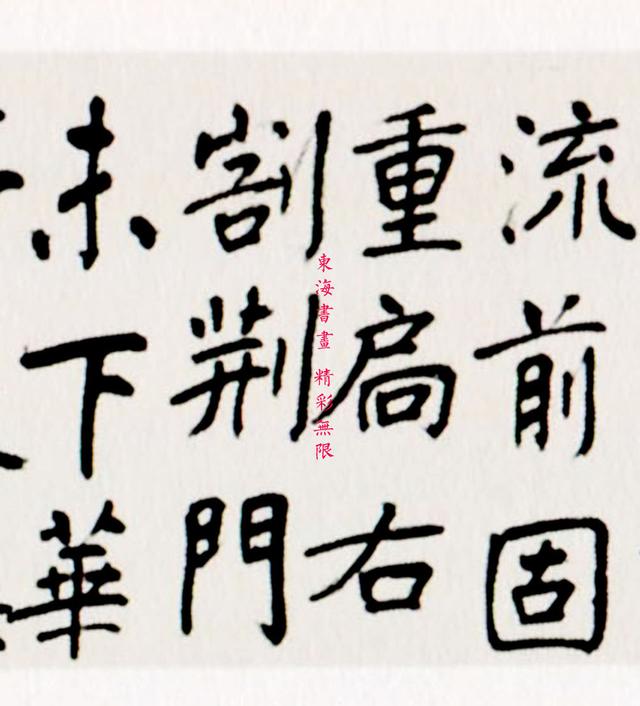 流前固
重扃右
割荆門
未下華
東海書畫 精彩無限